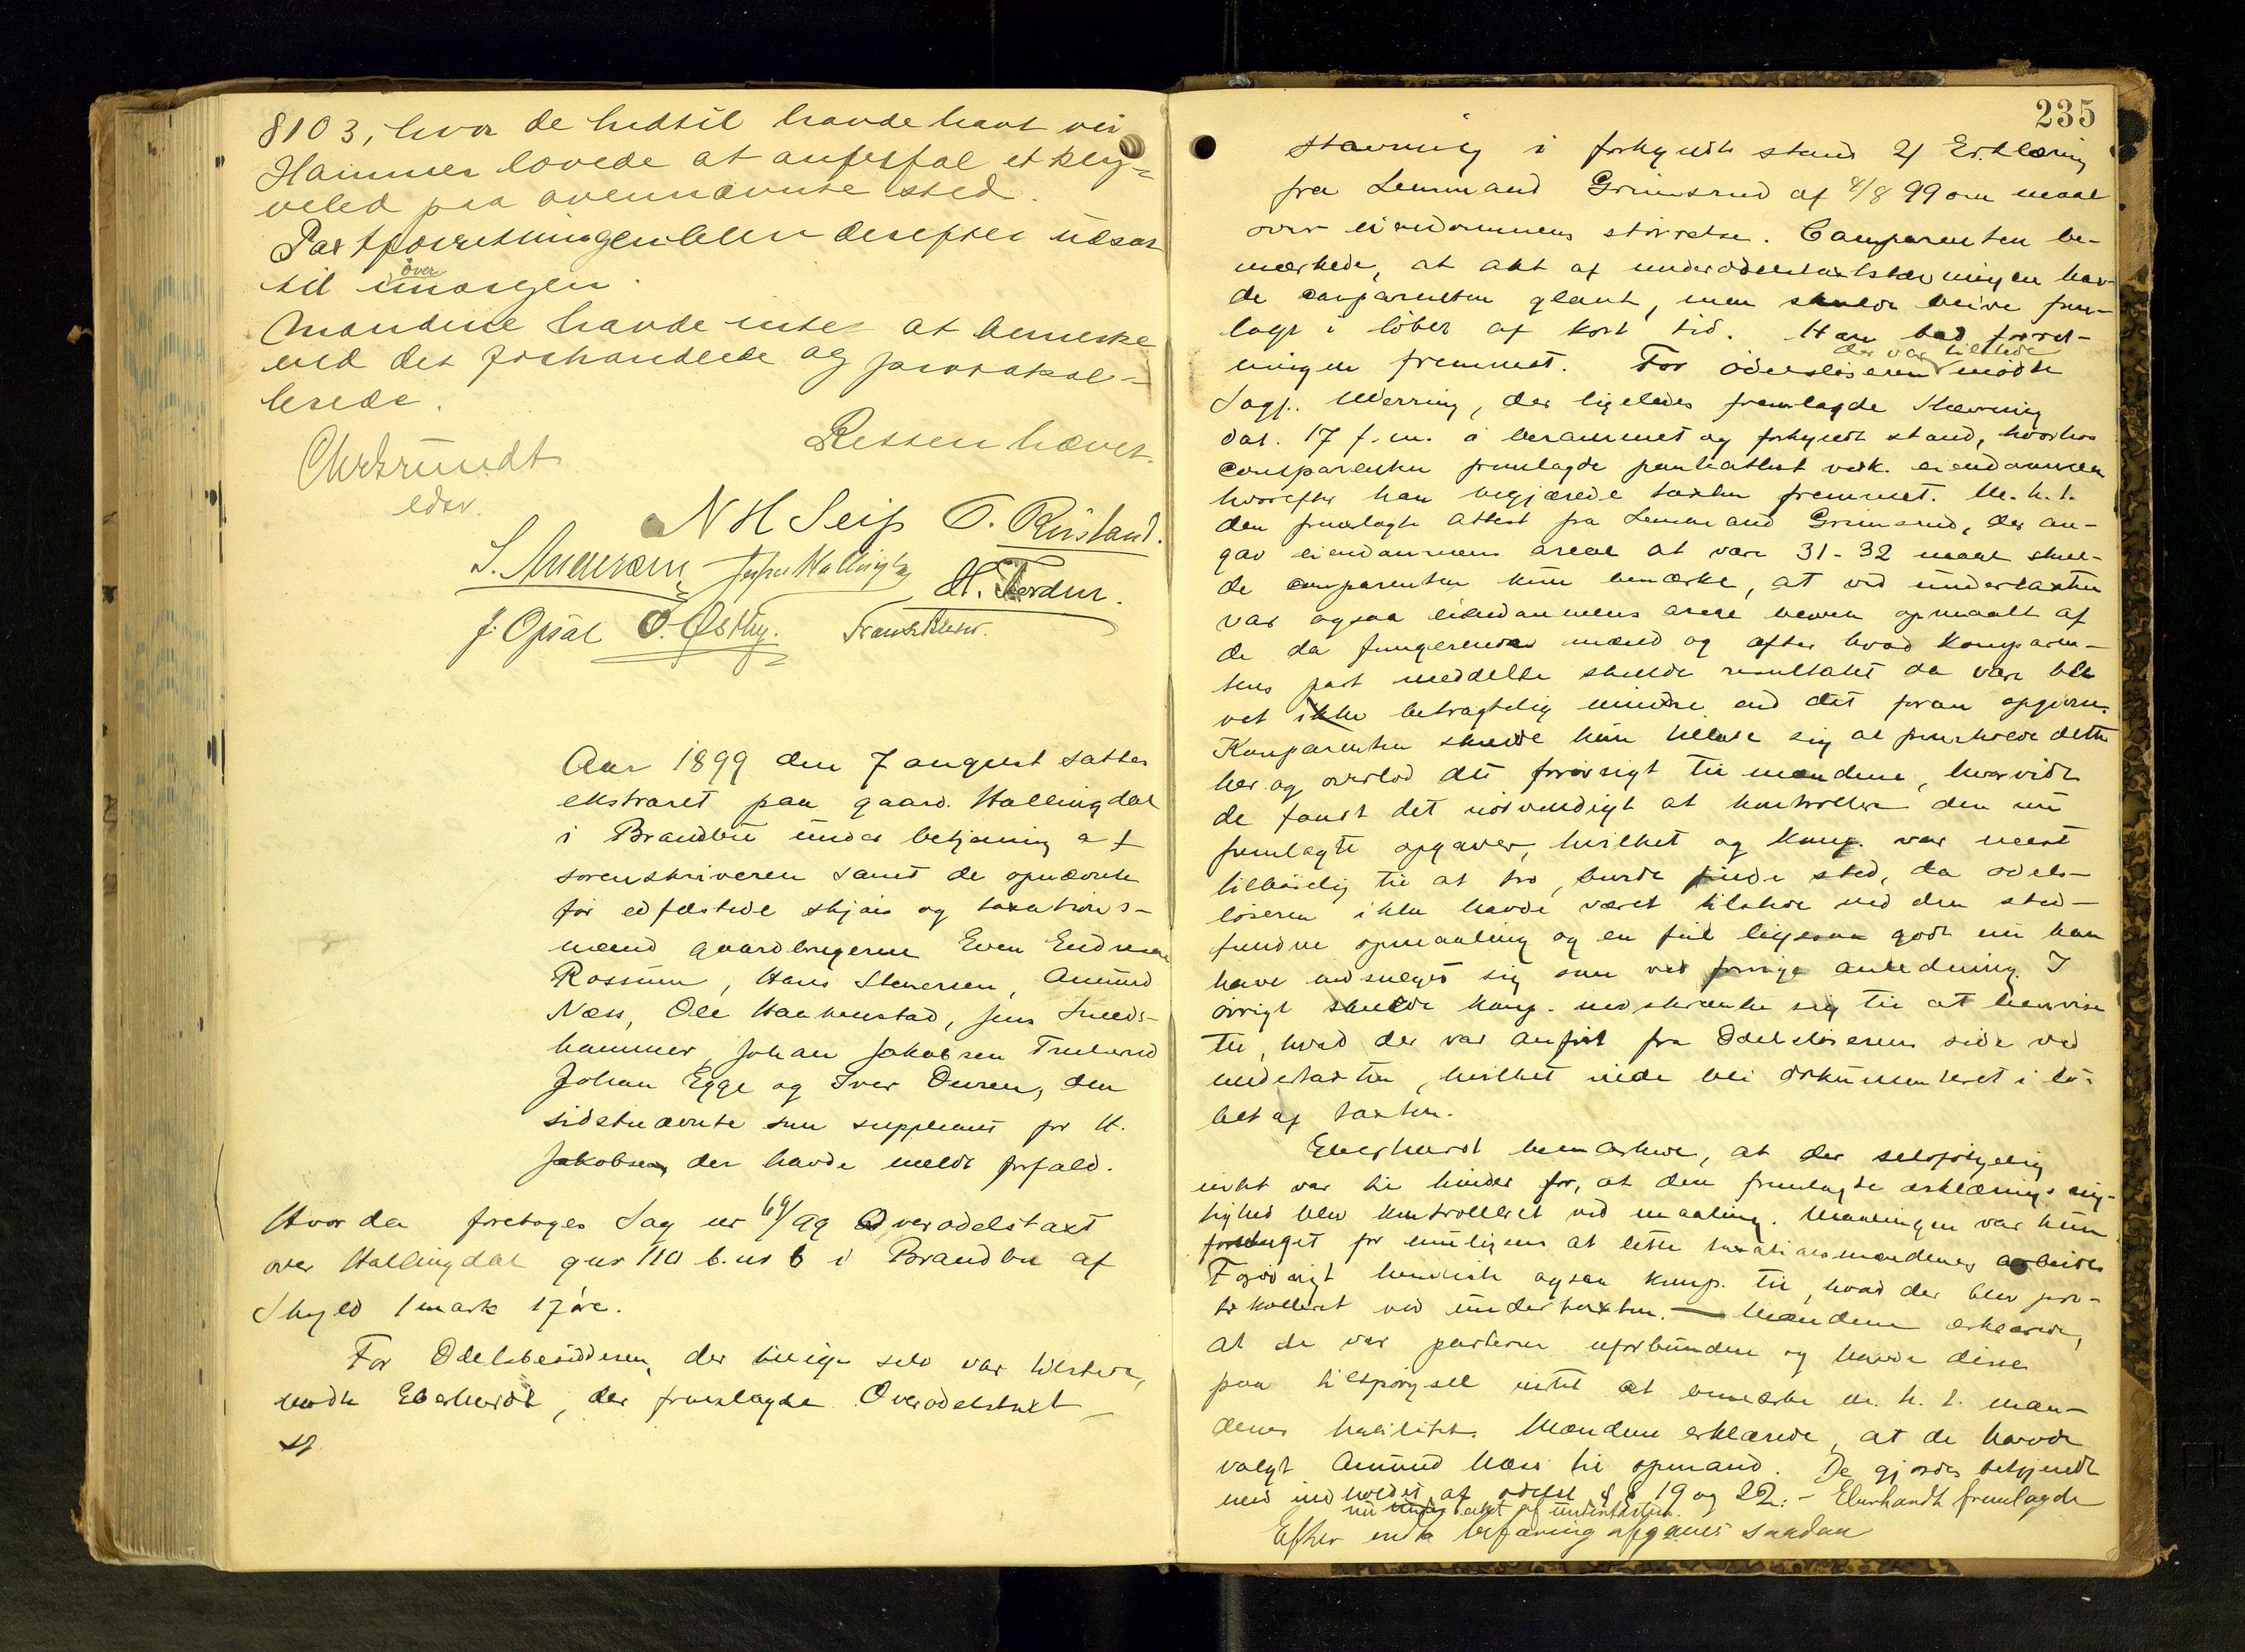 8103, hvor de hidtil havde havt vei
Hammer lovede at anbefal et
veled paa ovennævnte sted.
udsat
til over imorgen.
Mændene havde intet at bemerke
ved det forhandlede og protokol-
lerede.
Retten hævet.
Chr Brundt
edsv.
N H Seip O. Rustand.
S. Andersen
J. Opsal O. Østby.
Aar 1899 den 7 august sattes
ekstraret paa gaard. Hallingdal
i Brandbu under betjening af
sorenskriveren samt de opnævnte
før edfæstede skjøns og taxations-
mænd gaardbrugerne Even Endresen
Rossum, Hans Stenersen, Amund
Næss, Ole Haakenstad, Jens Smeds-
hammer, Johan Jakobsen Trulserud
Johan Egge og Iver Duren, den
sidstnævnte som suppleant for H.
Jakobsen, der havde meldt forfald.
Hvor da foretoges Sag nr 69/99 Overodelstaxt
over Hallingdal gno 110 b. no 6 i Brandbu af
Skyld 1 mark 17 øre.
For Odelsbesidderen, der tillige selv var tilstede,
mødte Eberhardt, der fremlagde Overodelstaxt
235
stævning i forkyndt stand 2) Erklæring
fra Lensmand Grimsrud af 4/8 99 om maal
over eiendommens størrelse. Comparenten be-
mærkede, at akt af underodelstaxtstævningen hav-
de comparenten glemt, men skulde blive frem-
lagt i løbet af kort tid. Han bad forret-
ningen fremmet. For odelsløseren der var tilstede mødte
Sagf. Werring, der ligeledes fremlagde Stævning
dat. 17 f. m. i berammet og forkyndt stand, hvorhos
comparenten fremlagde panteattest vedk. eiendommen
hvorefter han begjærede taxten fremmet. M. h. t.
den fremlagte attest fra Lensmand Grimsrud, der an-
gav eiendommens areal at være 31-32 maal skul-
de comparenten kun bemærke, at ved undertaxten
var ogsaa eiendommens areal bleven opmaalt af
de da fungerende mænd og efter hvad komparen-
tens part meddelte skulde resultatet da være ble
vet ikke betragtelig mindre end det foran opgivne.
Komparenten skulde kun tillade sig at fremholde dette
her og overlod det forøvrigt til mændene, hvorvidt
de fandt det nødvendigt at kontrollere den nu
fremlagte opgaver, hvilket og komp. var mest
tilbøielig til at tro, burde finde sted, da odels-
løseren ikke havde været tilstede ved den sted-
fundne opmaaling og en feil ligesaa godt nu kan
have indsneget sig som ved forrige anledning. I
øvrigt skulde komp. indskrænke sig til at henvise
til, hvad der var anført fra Odelsløserens side ved
undertaxten, hvilket vilde bli dokumenteret i lø-
bet af taxten.
Eberhardt bemærkede, at der selvfølgelig
intet var til hinder for, at den fremlagte erklærings rig-
tighed blev kontrolleret ved maaling. Maalingen var kun
foretaget for muligens at lette taxationsmændenes arbeide.
Forøvrigt henviste ogsaa komp. til, hvad der blev pro-
tokolleret ved undertaxten. — Mændene erklærede,
at de var parterne uforbundne og havde disse
paa tilspørgsel intet at bemærke m. h. t. mæn-
denes habilitet. Mændene erklærede, at de havde
valgt Amund Næss til opmand. De gjordes bekjendt
med indholdet af odelsl §§ 19 og 22. - Eberhardt fremlagde
nu akt af undertaxten.
Efter endt befaring afgaves saadan